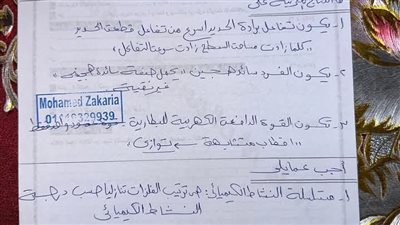 ١- يكون تفاعل برادة الحديد اسرع من تفاعل قطعة الحديد
"كلما زادت مساحة السطح زادت سرعة التفاعل"
٢- يكون الفرد سائد هجين "يحمل صفة سائدة
غير نقية"
Mohamed Zakaria
٣- تكون القوة الدافعة الكهربية للبطارية
"اقطاب متشابهة توازى"
أجب عما يلى
١- متسلسلة النشاط الكيميائي: هى ترتيب الفلزات تنازليا حسب درجة
النشاط الكيميائي